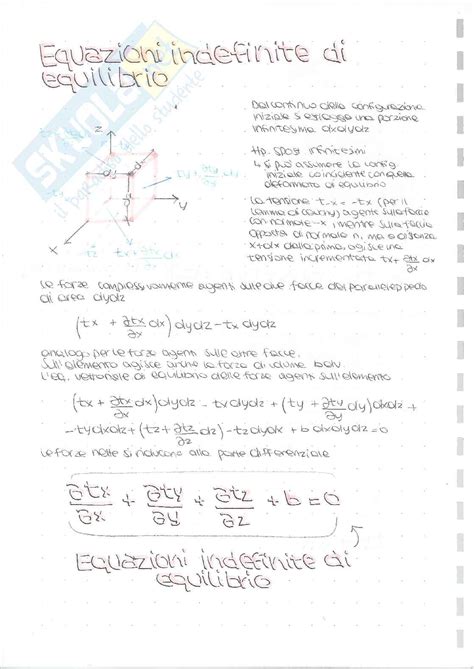 Equazioni indefinite di
equilibrio
SKUOLA
il paradiso dello studente
Dal continuo della configurazione
iniziale si estragga una porzione
infinitesima dxdydz
Hp. spost infinitesimi
↳ si può assumere la config
iniziale coincidente con quella
deformata di equilibrio
La tensione t-x = -tx (per il
Lemma di Cauchy) agente sulla faccia
con normale -x, mentre sulla faccia
opposta di normale n, ma a distanza
x+dx dalla prima, agisce una
tensione incrementata tx + ∂tx/∂x dx
z
dy
y
x
Le forze complessivamente agenti sulle due facce del parallelepipedo
di area dydz
(tx + ∂tx/∂x dx) dydz - tx dydz
analogo per le forze agenti sulle altre facce.
Sull'elemento agisce anche la forza di volume bdv.
L'eq. vettoriale di equilibrio delle forze agenti sull'elemento
(tx + ∂tx/∂x dx) dydz - tx dydz + (ty + ∂ty/∂y dy) dxdz +
- ty dxdz + (tz + ∂tz/∂z dz) - tz dydx + b dxdydz = 0
Le forze nette si riducono alla parte differenziale
∂tx/∂x + ∂ty/∂y + ∂tz/∂z + b = 0
Equazioni indefinite di
equilibrio